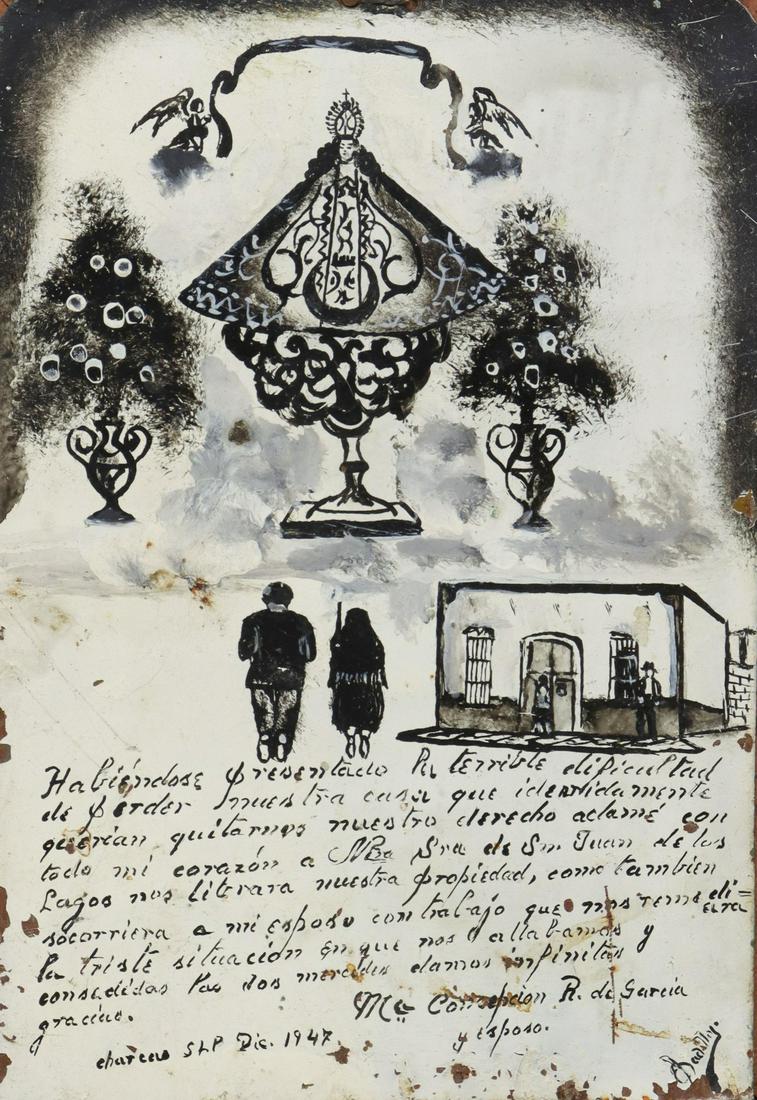 Habiéndose presentado la terrible dificultad
de perder nuestra casa que idevidamente
querían quitarnos nuestro derecho aclamé con
todo mi corazón a Ntra Sra de Sn. Juan de los
Lagos nos librara nuestra propiedad, como tambien
socorriera a mi esposo con trabajo que nos remedi=
eara
la triste situación en que nos allabamos y
consedidas las dos mercedes damos infinitas
gracias.
Ma Consepcion R. de García
y esposo.
charcas SLP Dic. 1947.